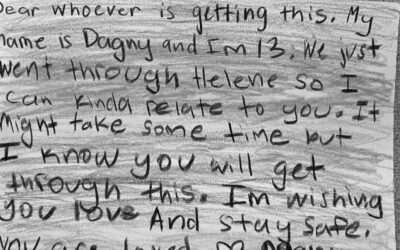 Dear whoever is getting this. My
name is Dagny and Im 13. We just
went through Helene so I
can kinda relate to you. It
might take some time but
I know you will get
through this. Im wishing
you love And stay safe.
You are loved